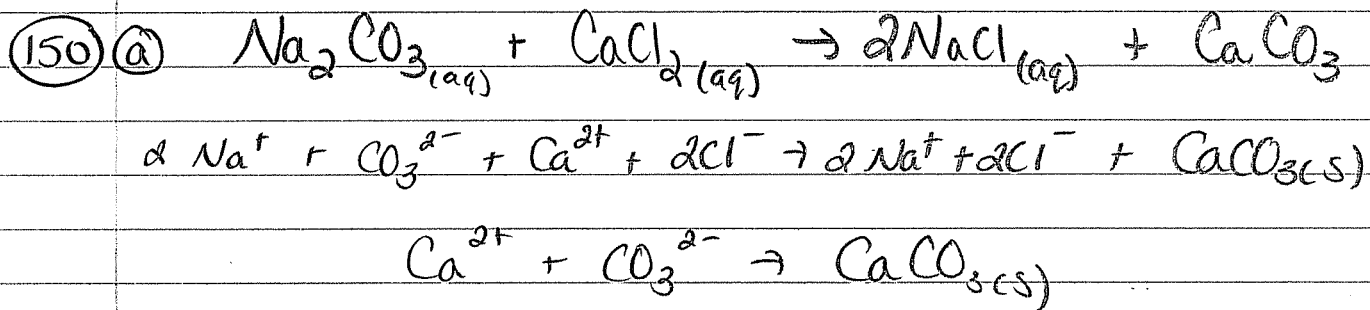 150 a Na₂CO₃(aq) + CaCl₂(aq) → 2NaCl(aq) + CaCO₃
2 Na⁺ + CO₃²⁻ + Ca²⁺ + 2Cl⁻ → 2 Na⁺ + 2Cl⁻ + CaCO₃(s)
Ca²⁺ + CO₃²⁻ → CaCO₃(s)